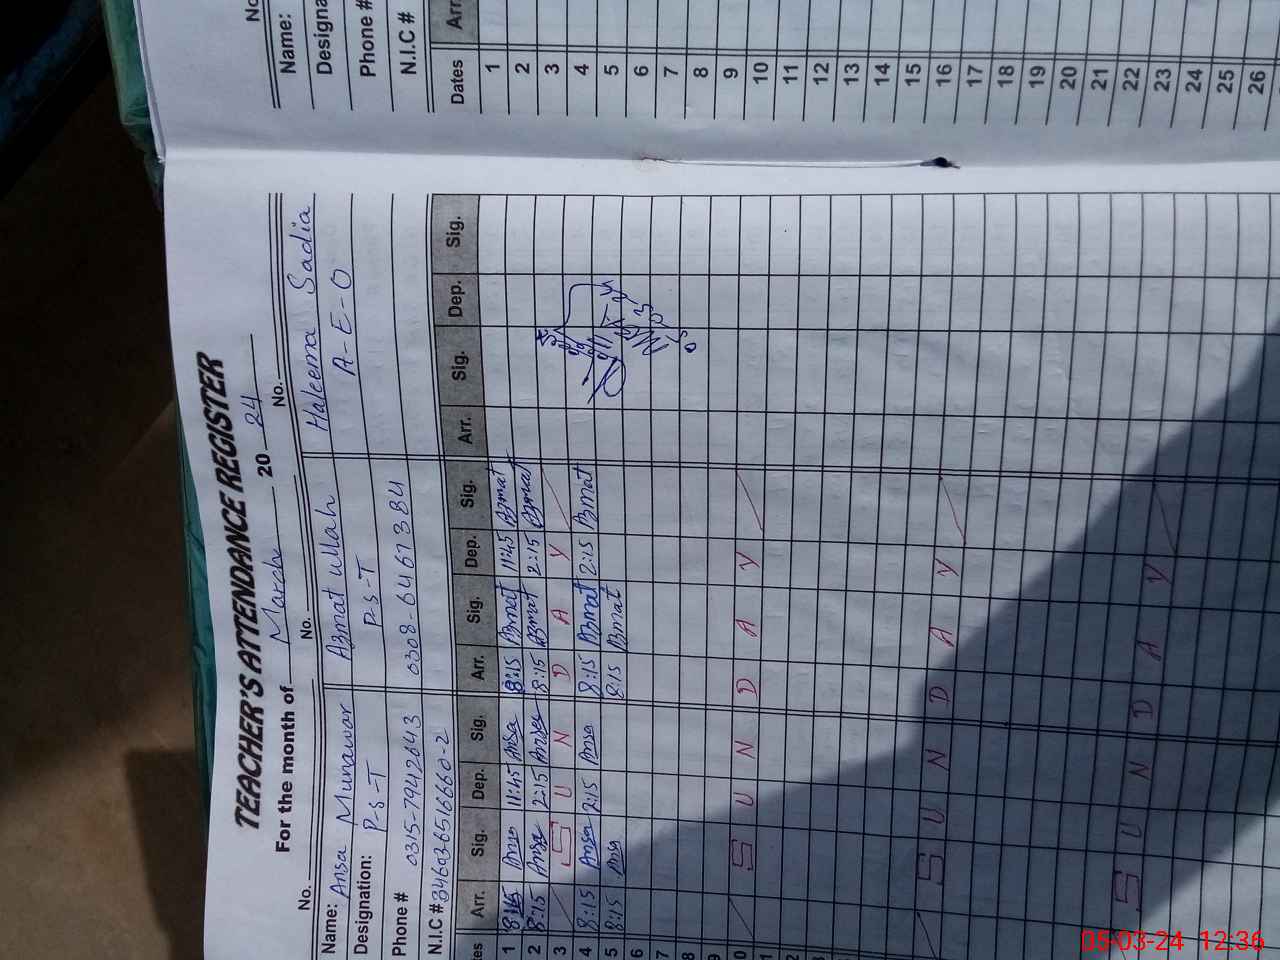 TEACHER'S ATTENDANCE REGISTER
For the month of Marche 20 24
No. No. No.
Name: Ansa Munawar Azmat Ullah Haleema Sadia
Designation: P-S-T P-S-T A-E-O
Phone # 0315-7942643 0308-6467384
N.I.C # 34603-6516660-2
Arr. Sig. Dep. Sig. Arr. Sig. Dep. Sig. Arr. Sig. Dep. Sig.
1 8:15 Ansa 11:45 Ansa 8:15 Azmat 11:45 Azmat
2 8:15 Ansa 2:15 Ansa 8:15 Azmat 2:15 Azmat
3 S U N D A Y
4 8:15 Ansa 2:15 Ansa 8:15 Azmat 2:15 Azmat
5 8:15 Ansa 8:15 Azmat
6
7
8
9
0 S U N D A Y
1
2
S U N D A Y
S U N D A Y
No
Name:
Designa
Phone #
N.I.C #
Dates Arr
1
2
3
4
5
6
7
8
9
10
11
12
13
14
15
16
17
18
19
20
21
22
23
24
25
26
05-03-24 12:36